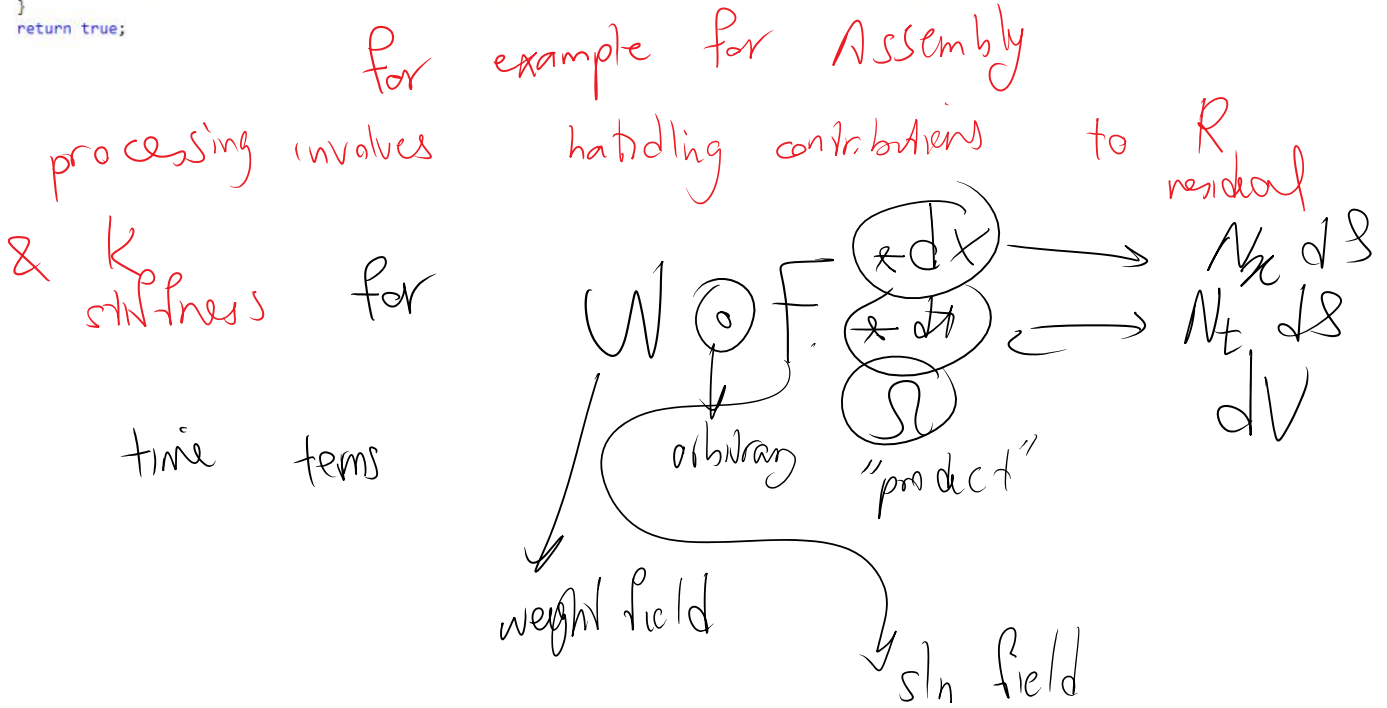 }
return true;
for example for Assembly
processing involves handling contributions to R
residual
& K
stiffness for W o F *dx → Nx dS
*dt → Nt dS
Ω dV
time terms
arbitrary "product"
weight field
sln field